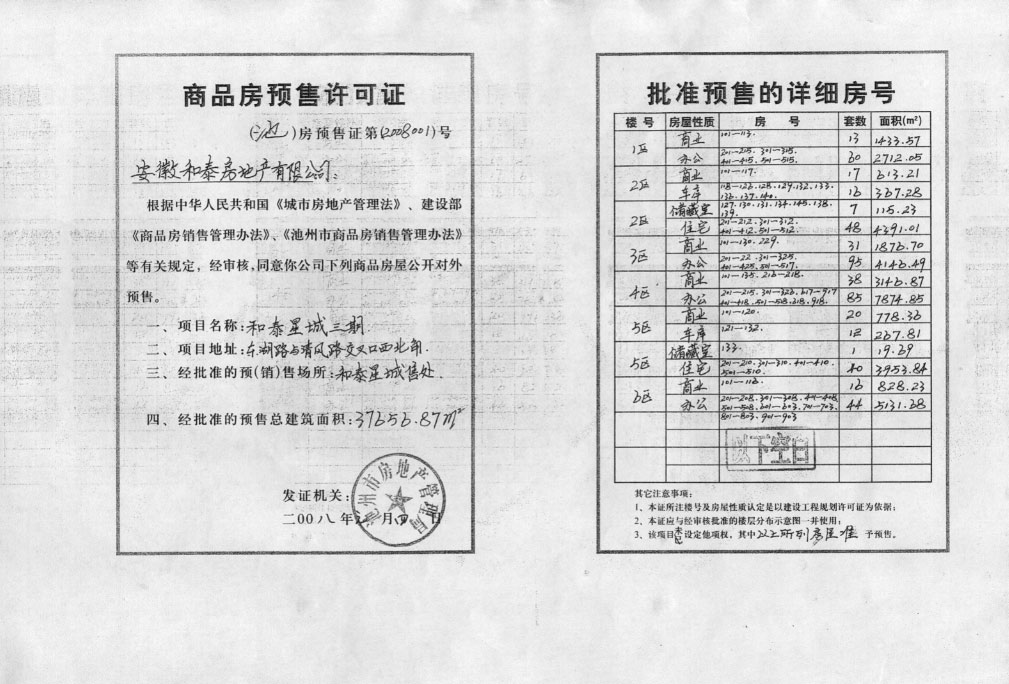 商品房预售许可证
(池)房预售证第(2008001)号
安徽和泰房地产有限公司:
根据中华人民共和国《城市房地产管理法》、建设部
《商品房销售管理办法》、《池州市商品房销售管理办法》
等有关规定，经审核，同意你公司下列商品房屋公开对外
预售。
一、项目名称:和泰星城三期
二、项目地址:东湖路与清风路交叉口西北角.
三、经批准的预(销)售场所:和泰星城售处.
四、经批准的预售总建筑面积:37656.87㎡
发证机关:
池州市房地产管理局
二00八年 月 日
批准预售的详细房号
楼号 房屋性质 房号 套数 面积(m²)
1区 商业 101—113. 13 1433.57
办公 201—215. 301—315. 401—415. 501—515. 60 2712.05
2区 商业 101—117. 17 613.21
车库 118—126.128.129.132.133. 136.137.140. 16 367.28
2区 储藏室 127.130.131.134.145.138. 139. 7 115.23
住宅 201—212.301—312. 401—412.501—512. 48 4391.01
3区 商业 101—130.229. 31 1876.70
办公 201—22.301—325. 401—425.501—517. 95 4146.49
4区 商业 101—135.216—218. 38 3146.87
办公 201—215.301—326.617—917 401—418.501—508.618.918. 85 7874.85
5区 商业 101—120. 20 778.36
车库 121—132. 12 267.81
5区 储藏室 133. 1 19.69
住宅 201—210.301—310.401—410. 501—510. 40 3953.84
6区 商业 101—116. 16 828.23
办公 201—208.301—308.401—408 501—508.601—603.701—703. 801—803.901—903 44 5131.68
以下空白
其它注意事项:
1、本证所注楼号及房屋性质认定是以建设工程规划许可证为依据;
2、本证应与经审核批准的楼层分布示意图一并使用;
3、该项目未已设定他项权，其中以上所列房屋准予预售。